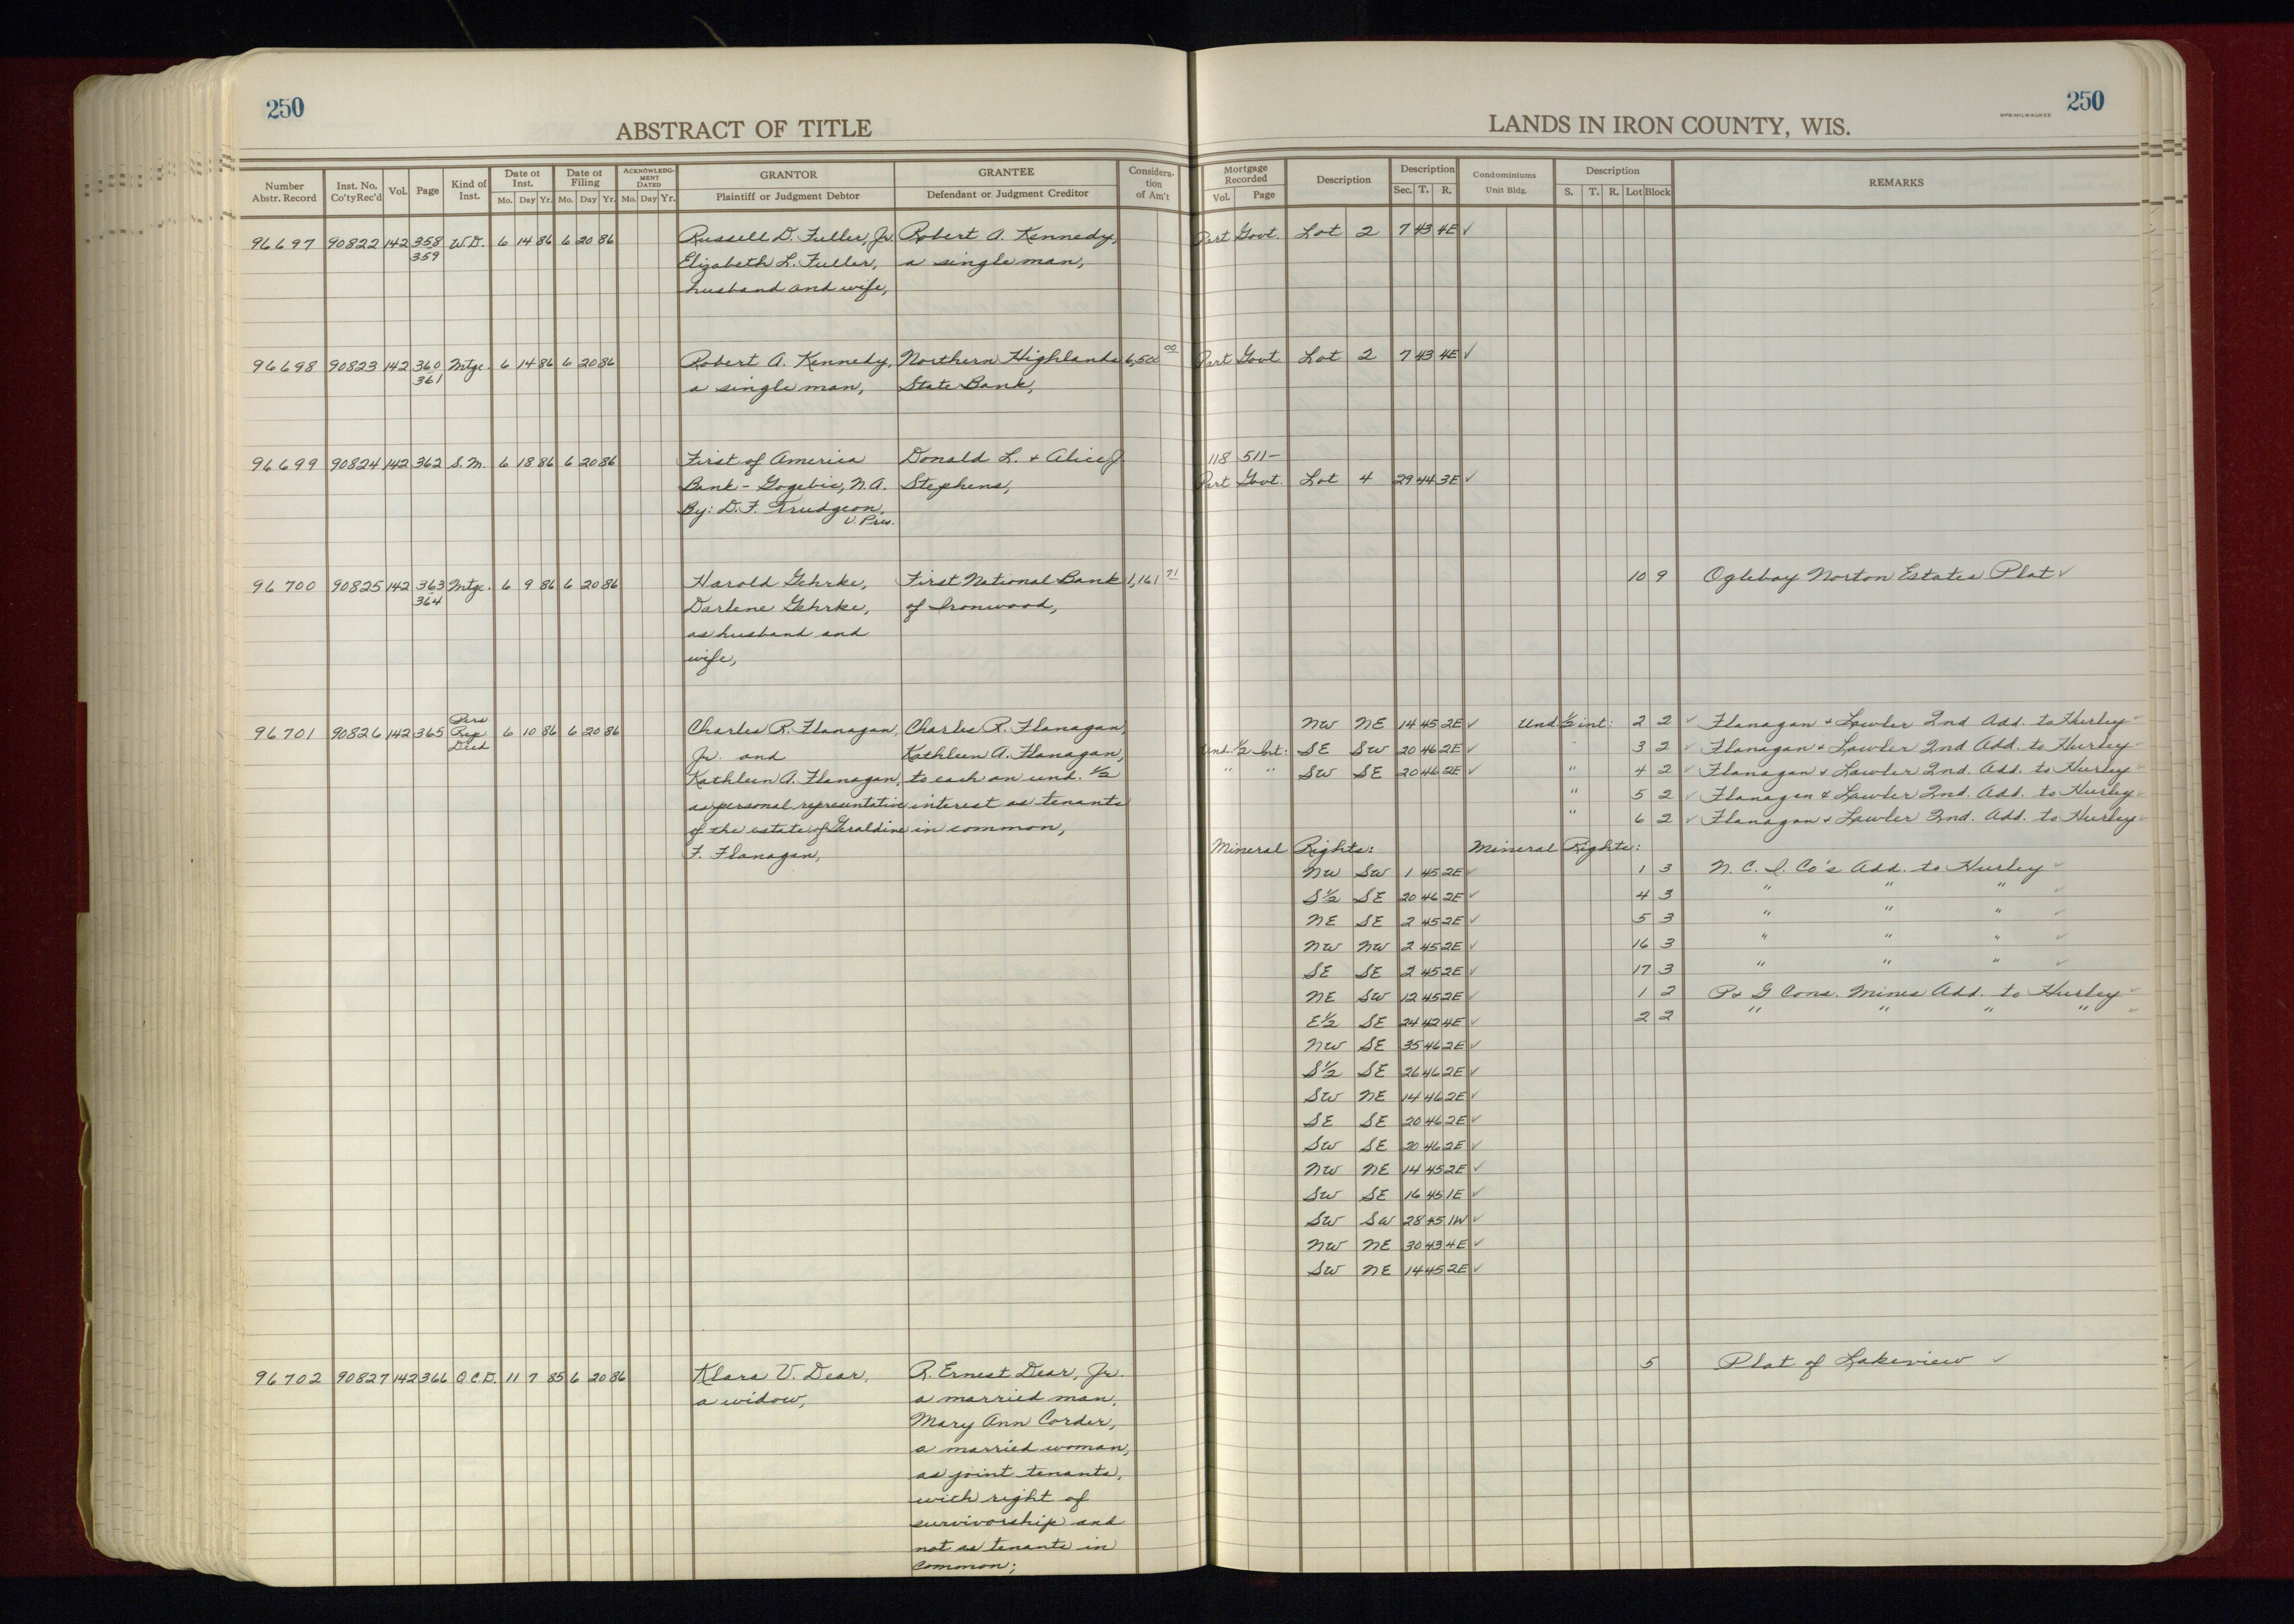 250
ABSTRACT OF TITLE
Number Abstr. Record
Inst. No. Co'tyRec'd
Vol.
Page
Kind of Inst.
Date of Inst.
Mo. Day Yr.
Date of Filing
Mo. Day Yr.
ACKNOWLEDG-MENT DATED
Mo. Day Yr.
GRANTOR
Plaintiff or Judgment Debtor
GRANTEE
Defendant or Judgment Creditor
Considera-tion of Am't
96697 90822 142 358 W.D. 6 14 86 6 20 86 Russell D. Fuller, Jr. Robert A. Kennedy,
359 Elizabeth L. Fuller, a single man,
husband and wife,
96698 90823 142 360 Mtge. 6 14 86 6 20 86 Robert A. Kennedy, Northern Highlands 6,500 00
361 a single man, State Bank,
96699 90824 142 362 S.M. 6 18 86 6 20 86 First of America Donald L. + Alice J.
Bank - Gogebic, N.A. Stephens,
By: D.F. Trudgeon,
V. Pres.
96700 90825 142 363 Mtge. 6 9 86 6 20 86 Harold Gehrke, First National Bank 1,161 71
364 Darlene Gehrke, of Ironwood,
as husband and
wife,
96701 90826 142 365 Pers Rep Deed 6 10 86 6 20 86 Charles R. Flanagan, Charles R. Flanagan,
Jr. and Kathleen A. Flanagan,
Kathleen A. Flanagan, to each an und. 1/2
as personal representative interest as tenants
of the estate of Geraldine in common,
F. Flanagan,
96702 90827 142 366 Q.C.D. 11 7 85 6 20 86 Klara V. Dear, R. Ernest Dear, Jr.
a widow, a married man,
Mary Ann Corder,
a married woman,
as joint tenants,
with right of
survivorship and
not as tenants in
common;
250
LANDS IN IRON COUNTY, WIS.
WPB-MILWAUKEE
Mortgage Recorded
Vol. Page
Description
Description
Sec. T. R.
Condominiums
Unit Bldg.
Description
S. T. R. Lot Block
REMARKS
Part Govt. Lot 2 7 43 4E ✓
Part Govt. Lot 2 7 43 4E ✓
118 511-
Part Govt. Lot 4 29 44 3E ✓
10 9 Oglebay Norton Estates Plat ✓
NW NE 14 45 2E ✓ Und. 1/2 int: 2 2 ✓ Flanagan + Lawler 2nd Add. to Hurley ✓
Und. 1/2 Int: SE SW 20 46 2E ✓ " 3 2 ✓ Flanagan + Lawler 2nd Add. to Hurley ✓
" " SW SE 20 46 2E ✓ " 4 2 ✓ Flanagan + Lawler 2nd. Add. to Hurley ✓
" 5 2 ✓ Flanagan & Lawler 2nd. Add. to Hurley ✓
" 6 2 ✓ Flanagan + Lawler 2nd. Add. to Hurley ✓
Mineral Rights: Mineral Rights:
NW SW 1 45 2E ✓ 1 3 N. C. I. Co's Add. to Hurley ✓
S 1/2 SE 20 46 2E ✓ 4 3 " " " ✓
NE SE 2 45 2E ✓ 5 3 " " " ✓
NW NW 2 45 2E ✓ 16 3 " " " ✓
SE SE 2 45 2E ✓ 17 3 " " " ✓
NE SW 12 45 2E ✓ 1 2 P + G Cons. Mines Add. to Hurley ✓
E 1/2 SE 24 42 4E ✓ 2 2 " " " " ✓
NW SE 35 46 2E ✓
S 1/2 SE 26 46 2E ✓
SW NE 14 46 2E ✓
SE SE 20 46 2E ✓
SW SE 20 46 2E ✓
NW NE 14 45 2E ✓
SW SE 16 45 1E ✓
SW SW 28 45 1W ✓
NW NE 30 43 4E ✓
SW NE 14 45 2E ✓
5 Plat of Lakeview ✓